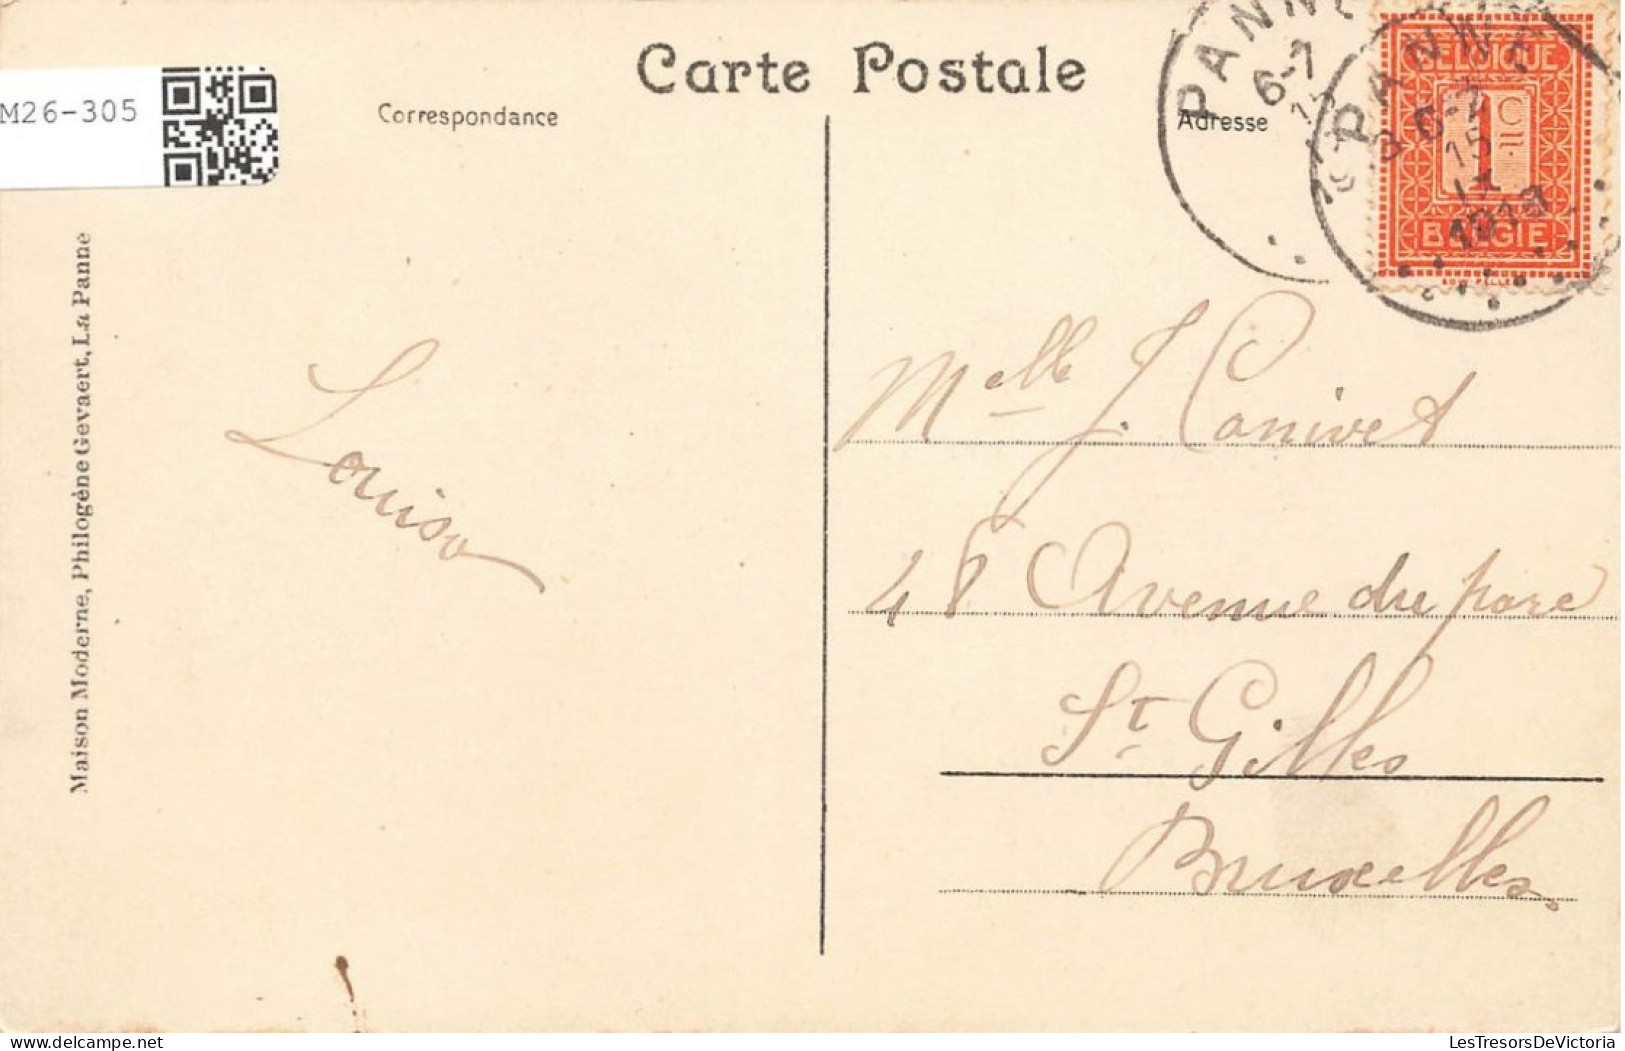 Carte Postale
M26-305
Correspondance
Adresse
PANNE
6-7
15
PANNE
6-7
15
IX
BELGIQUE
1 C
BELGIË
Maison Moderne, Philogène Gevaert, La Panne
Louisa
Melle J. Canivet
48 Avenue du parc
St Gilles
Bruxelles.
LesTresorsDeVictoria